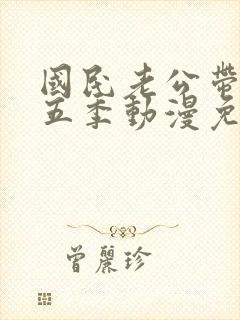 國民老公帶
五季動漫免
曾麗珍